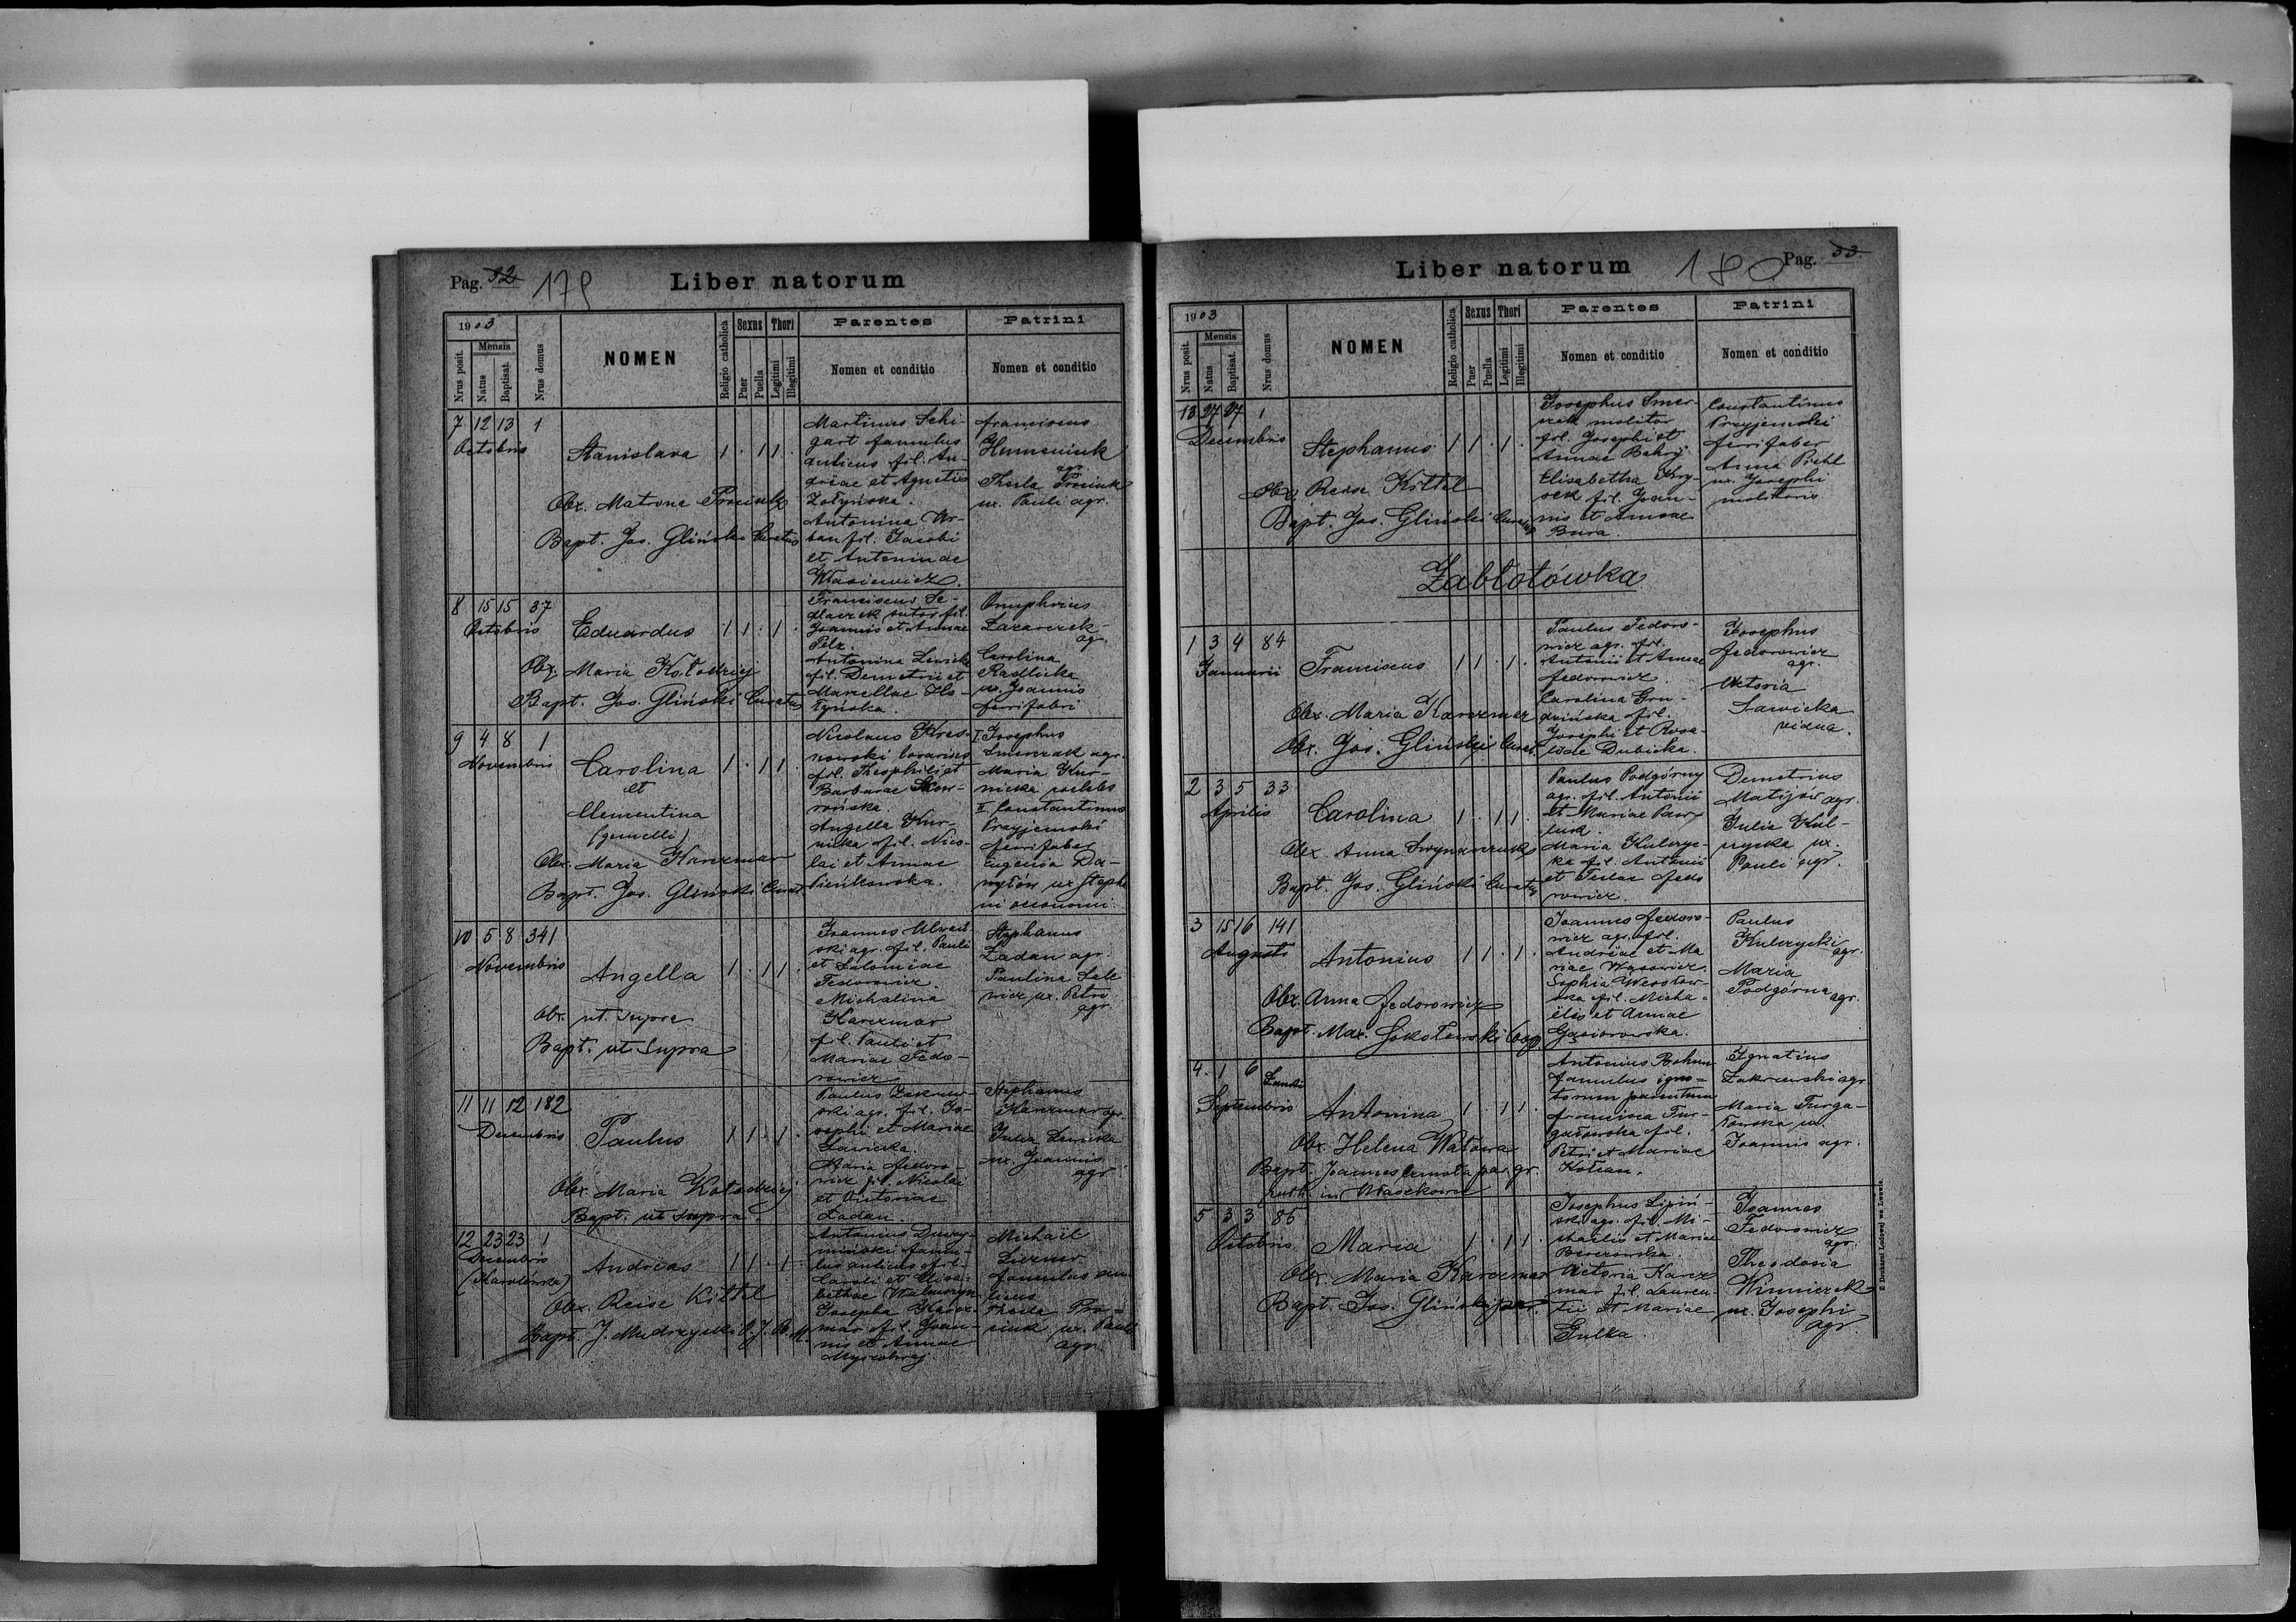 Pag. 32 179 Liber natorum
1903
Nrus posit.
Mensis
Natus
Baptisat.
Nrus domus
NOMEN
Religio catholica
Sexus
Puer
Puella
Thori
Legitimi
Illegitimi
Parentes
Nomen et conditio
Patrini
Nomen et conditio
7 12 13 1
Octobris
Stanislava 1 . 1 1 .
Obx. Matrona Prociuk
Bapt. Jos. Gliński Curatus
Martinus Schi-
gart famulus
aulicus fil. An-
dreae et Agnetis
Zołyńska.
Antonina Ur-
ban fil. Jacobi
et Antoninae
Własiewicz.
Franciscus
Humeniuk
agr.
Thecla Prociuk
ux. Pauli agr.
8 15 15 37
Octobris
Eduardus 1 1 . 1 .
Obx. Maria Kołodziej
Bapt. Jos. Gliński Curatus
Franciscus Se-
dlaczek sutor fil.
Joannis et Annae
Pelz.
Antonina Lewicka
fil. Demetrii et
Marcellae
Onuphrius
Lazarczek
agr.
Carolina
Radlicka
ux. Joannis
ferrifabri
9 4 8 1
Novembris
Carolina 1 . 1 1 .
et
Clementina
(gemelli)
Obx. Maria Karczmar
Bapt. Jos. Gliński Curat.
Nicolaus Kres-
nowski
fil. Theophili et
Barbarae Skow-
rońska.
Angella Kur-
nicka fil. Nico-
lai et Annae
Pieńkowska.
I. Josephus
Smerczak agr.
Maria Kur-
nicka coelebs
II. Constantinus
Przyjemski
ferrifaber
Eugenia Da-
nyłów ux. Stepha
ni oeconomi.
10 5 8 341
Novembris
Angella 1 . 1 1 .
Obx. ut supra
Bapt. ut supra
Joannes
ski agr. fil. Pauli
et Salomeae
Fedorowicz.
Michalina
Karczmar
fil. Pauli et
Mariae Fedo-
rowicz
Stephanus
Zadan agr.
Paulina
wicz ux. Petri
agr.
11 11 12 182
Decembris
Paulus 1 1 . 1 .
Obx. Maria Kołodziej
Bapt. ut supra.
Paulus Zakrzew-
ski agr. fil. Jo-
sephi et Mariae
Sawicka.
Maria Fedoro-
wicz fil. Nicolai
et Victoriae
Zadan.
Stephanus
Karczmar agr.
Julia Lewicka
ux. Joannis
agr.
12 23 23 1
Decembris
(Karolówka)
Andreas 1 1 . 1 .
Obx. Reise Kittel
Bapt. J. Mudrzycki O. J. B. M.
Antonius Duczy-
miński famu-
lus aulicus fil.
Caroli et Elisa-
bethae
Josepha Karcz-
mar fil. Joan-
nis et Annae
Michaël
famulus au-
licus
Thecla Pro-
ciuk ux. Pauli
agr.
Liber natorum 180 Pag. 33
1903
Nrus posit.
Mensis
Natus
Baptisat.
Nrus domus
NOMEN
Religio catholica
Sexus
Puer
Puella
Thori
Legitimi
Illegitimi
Parentes
Nomen et conditio
Patrini
Nomen et conditio
13 27 27 1
Decembris
Stephanus 1 1 . 1 .
Obx. Reise Kittel
Bapt. Jos. Gliński Curatus
Josephus Smer-
czak molitor
fil. Josephi et
Annae Bahry
Elisabetha Kry-
sek fil. Joan-
nis et Annae
Bura.
Constantinus
Przyjemski
ferrifaber
Anna Piehl
ux. Josephi
molitoris
Zabłotówka
1 3 4 84
Januarii
Franciscus 1 1 . 1 .
Obx. Maria Karczmar
Obx. Jos. Gliński Curat.
Paulus Fedoro-
wicz agr. fil.
Antonii et Annae
Fedorowicz.
Carolina Gru-
dzińska fil.
Josephi et Rosa-
liae Dubicka.
Josephus
Fedorowicz
agr.
Victoria
Sawicka
vidua.
2 3 5 33
Aprilis
Carolina 1 . 1 1 .
Obx. Anna
Bapt. Jos. Gliński Curatus
Paulus Podgórny
agr. fil. Antonii
et Mariae Pawy
luk.
Maria Kulczyc-
ka fil. Antonii
et Teclae Fedo
rowicz.
Demetrius
Matijów agr.
Julia Kul-
czycka ux.
Pauli agr.
3 15 16 141
Augusti
Antonius 1 1 . 1 .
Obx. Anna Fedorowicz
Bapt. Max. Sokołowski Coop
Joannes Fedoro-
wicz agr. fil.
Andreae et Ma
riae Wąsowicz.
Sophia Wesołow-
ska fil. Micha-
elis et Annae
Gąsiorowska.
Paulus
Kulczycki
agr.
Maria
Podgórna agr.
4. 1 6
Septembris
Antonina 1 . 1 1 .
Obx. Helena Watowa
Bapt. Joannes par. gr.
ruth. in
Antonius Bohun
famulus igno-
torum parentum
Francisca Tur-
gałowska fil.
Petri et Mariae
Kocian.
Ignatius
Zakrzewski agr
Maria Turga-
łowska ux.
Joannis agr.
5 3 3 85
Octobris
Maria 1 . 1 1 .
Obx. Maria Karczmar
Bapt. Jos. Gliński par.
Josephus Lipiń-
ski agr. fil. Mi-
chaelis et Mariae
Berezowska.
Victoria Karcz
mar fil. Lauren-
tii et Mariae
Gulka.
Joannes
Fedorowicz
agr.
Theodosia
Winniczek
ux. Josephi
agr.
Z Drukarni Ludowej we Lwowie.